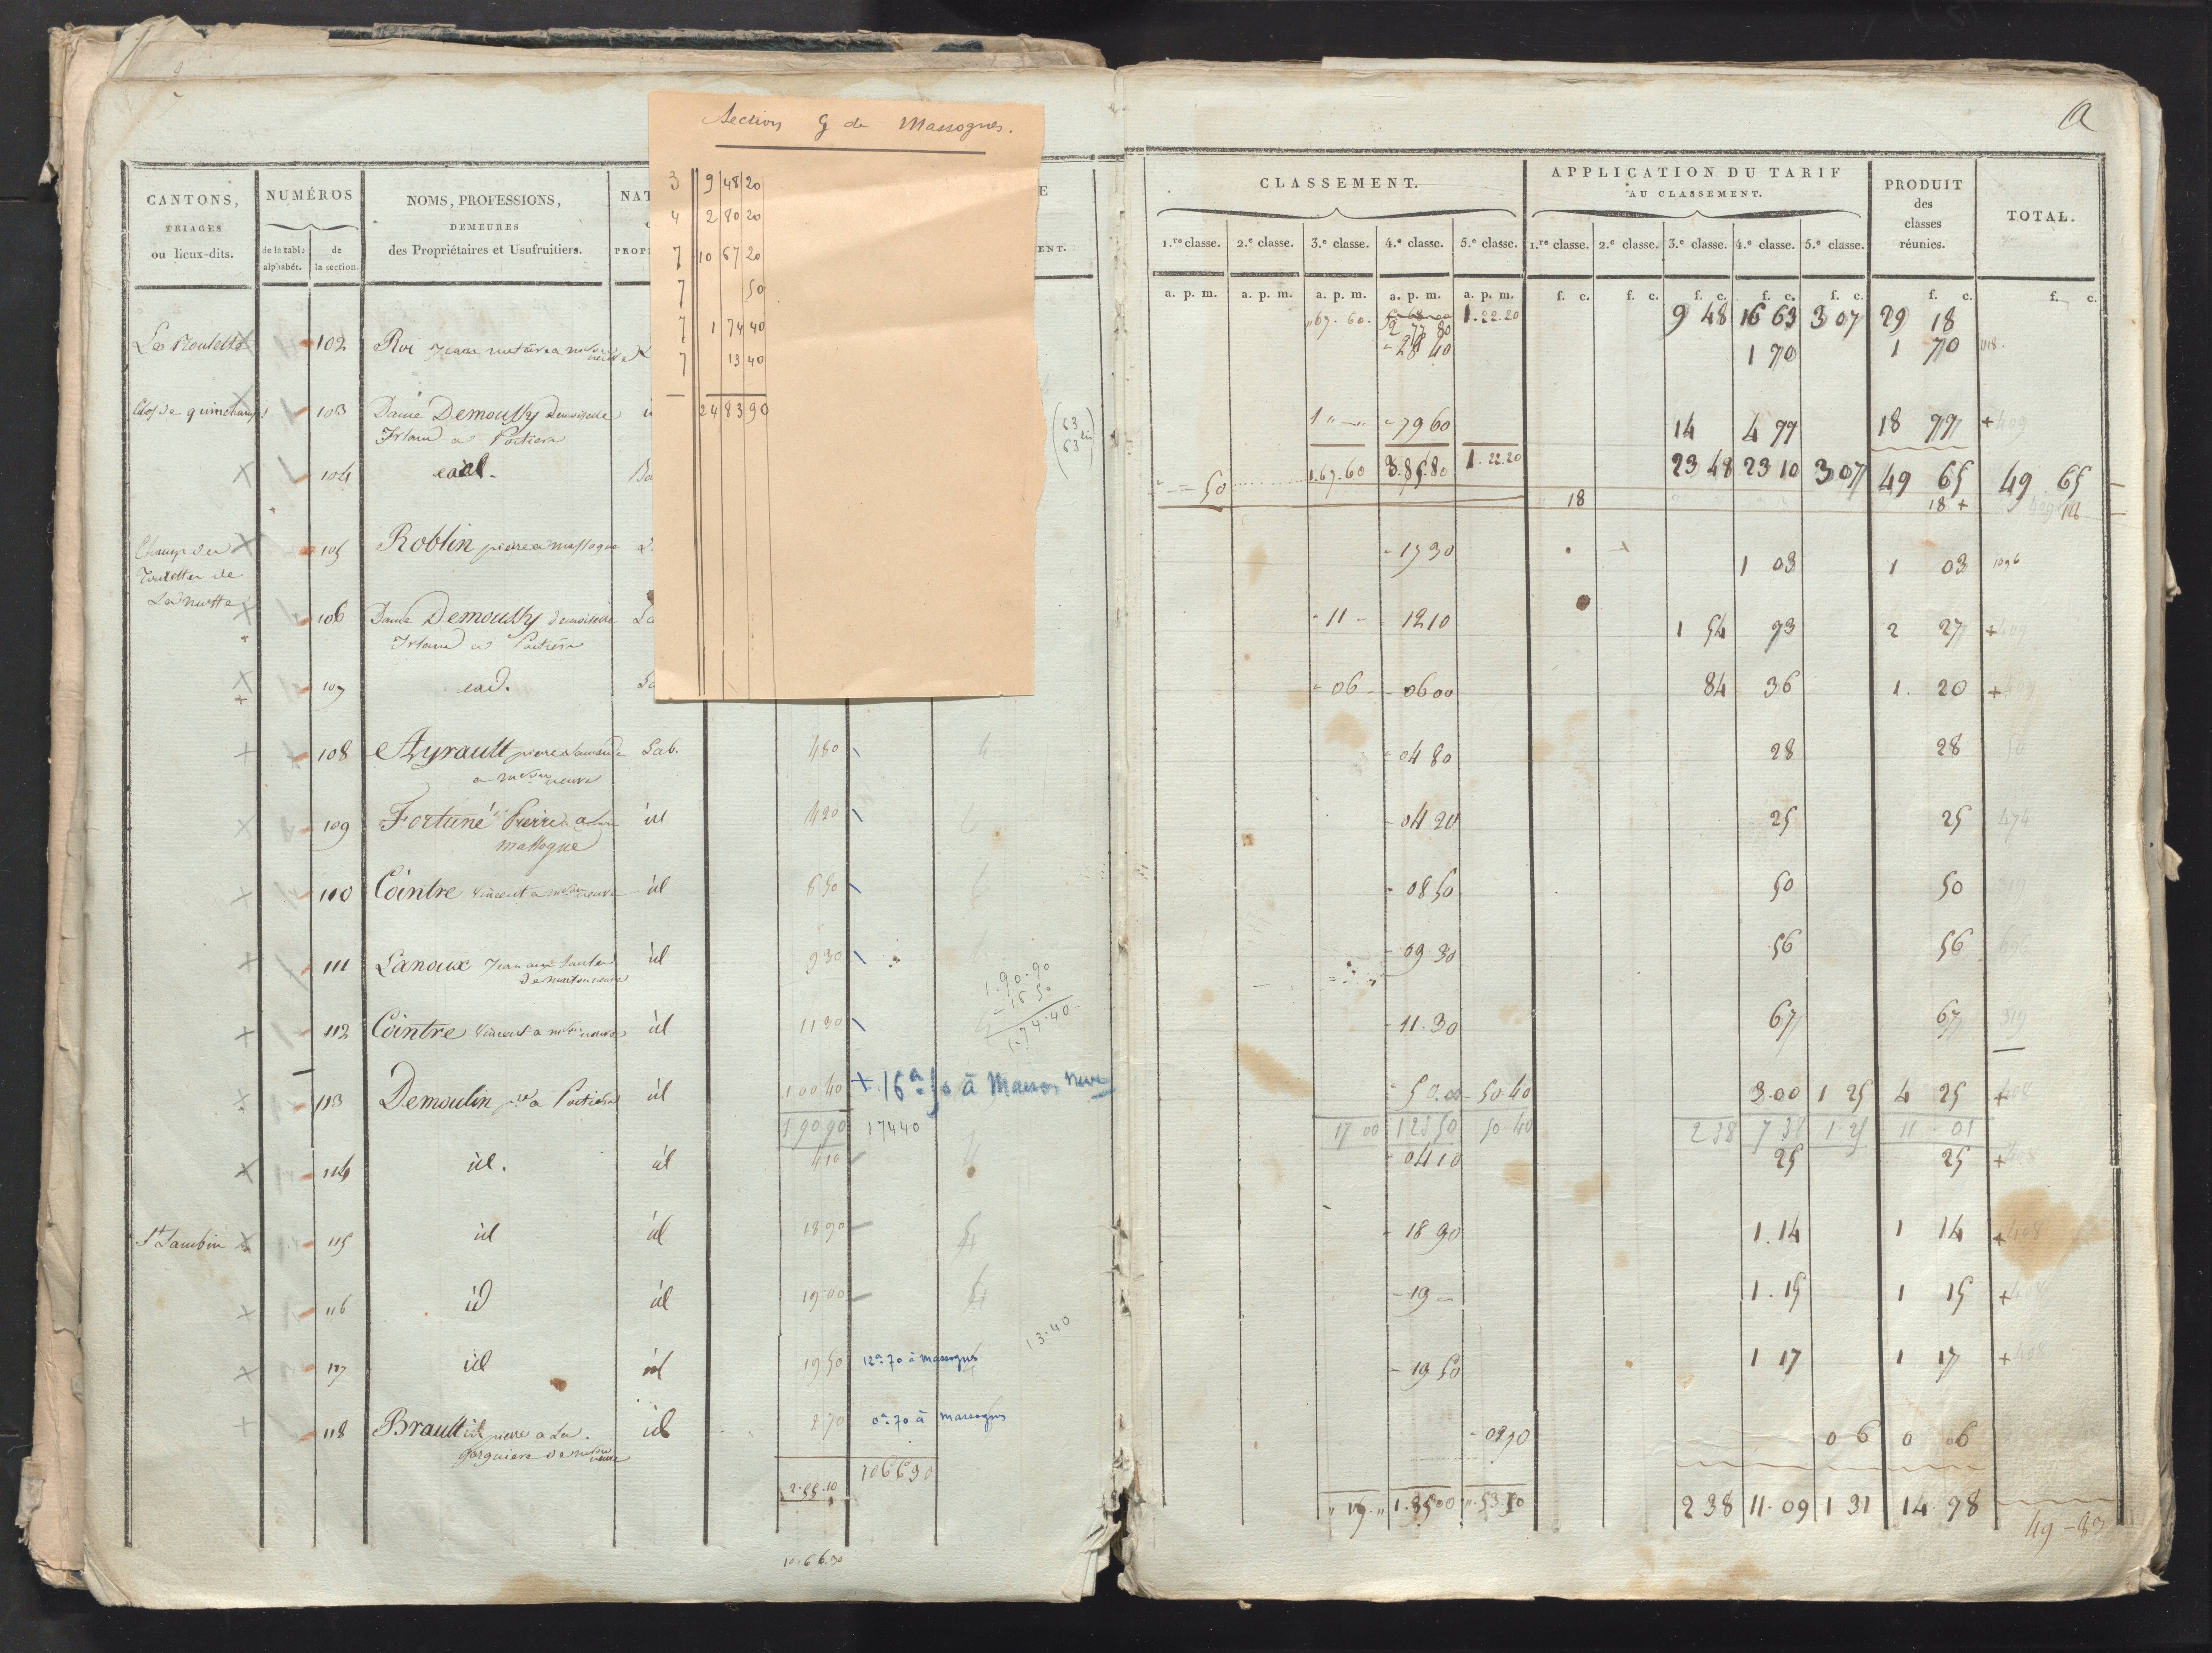 Section G de Massognes.
3 9 48 20
4 2 80 20
7 10 67 20
7 50
7 1 74 40
7 13 40
24 83 90
CANTONS,
TRIAGES
ou lieux-dits.
NUMÉROS
de la tabl:
alphabét.
de
la section.
NOMS, PROFESSIONS,
DEMEURES
des Propriétaires et Usufruitiers.
NAT
PROP
E
ENT.
102 Roi Jean notaire a
Clos de quinchamps 103 Dame Demoussy demoiselle
Irland a Poitiers
(63
63 bis)
104 ead.
Champ des 105 Roblin pierre a massogne
de
La motte
106 Dame Demoussy demoiselle
Irland a Poitiers
107 ead.
108 Ayrault pierre Lab. 480
a neuve
109 Fortuné Pierre a id 420
massogne
110 Cointre vincent a neuve id 850
111 Lanoux Jean id 930
1.90.90
16 50
1.74.40
112 Cointre vincent a neuve id 1130
113 Demoulin a Poitiers id 10040 + 16a 50 à Maison neuve
19090 17440
114 id. id 410
115 id id 1890
116 id id 1900
13.40
117 id id 1950 12a.70 à Massognes
118 Brault pierre a La id 270 0a.70 à Massognes
2.55.10 106630
10.66.30
a
CLASSEMENT.
APPLICATION DU TARIF
AU CLASSEMENT.
PRODUIT
des
classes
réunies.
TOTAL.
1.re classe. 2.e classe. 3.e classe. 4.e classe. 5.e classe. 1.re classe. 2.e classe. 3.e classe. 4.e classe. 5.e classe.
a. p. m. a. p. m. a. p. m. a. p. m. a. p. m. f. c. f. c. f. c. f. c. f. c. f. c. f. c.
"67.60. 2 77 80 1.22.20 9 48 16 63 3 07 29 18
- 28 40 1 70 1 70
1 " - - 79 60 14 4 77 18 77 + 409
1.67.60 3.85.80 1.22.20 23 48 23 10 3 07 49 65 49 65
50 18 18 +
- 17 30 1 03 1 03 1096
- 11 - - 12 10 1 54 73 2 27 + 409
- 06 - - 06 00 84 36 1. 20 + 409
- 04 80 28 28 50
- 04 20 25 25 474
- 08 50 50 50 319
- 09.30 56 56 696
- 11.30 67 67 319
- 50.00 - 50.40 3.00 1 25 4 25 + 408
17 00 123 50 50.40 2 38 7 38 1.25 11 01
- 04 10 25 25 + 408
- 18 90 1.14 1 14 + 408
- 19 - 1.15 1 15 + 408
- 19 50 1 17 1 17 + 408
- 02 70 0 6 0 06
1.85 00 ".53.10 2 38 11.09 1 31 14 78
49 - 83